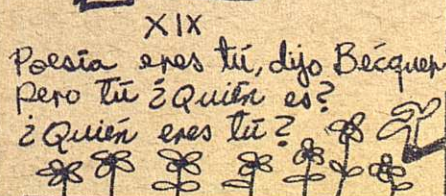 XIX
Poesía eres tú, dijo Becquer
pero tú ¿Quién es?
¿Quién eres tú?